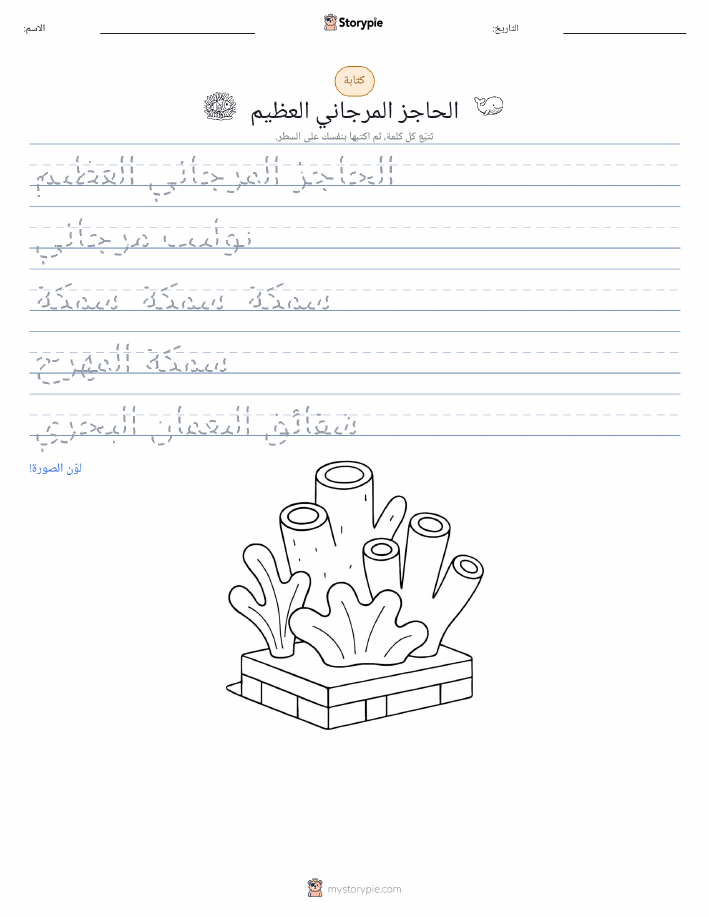 Storypie
الاسم:
التاريخ:
كتابة
الحاجز المرجاني العظيم
تتبّع كل كلمة، ثم اكتبها بنفسك على السطر.
الحاجز المرجاني العظيم
بوليب مرجاني
سمكة سمكة سمكة
سمكة المهرج
شقائق النعمان البحري
لوّن الصورة!
mystorypie.com